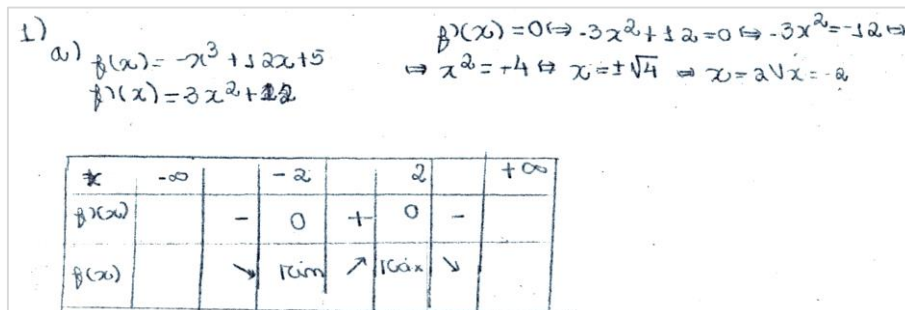 1)
a) f(x) = -x³ + 12x + 5
f'(x) = 3x² + 12
f'(x) = 0 ⇔ -3x² + 12 = 0 ⇔ -3x² = -12 ⇔
⇔ x² = +4 ⇔ x = ±√4 ⇔ x = 2 ∨ x = -2
x -∞ -2 2 +∞
f'(x) - 0 + 0 -
f(x) ↘ Mín ↗ Máx ↘